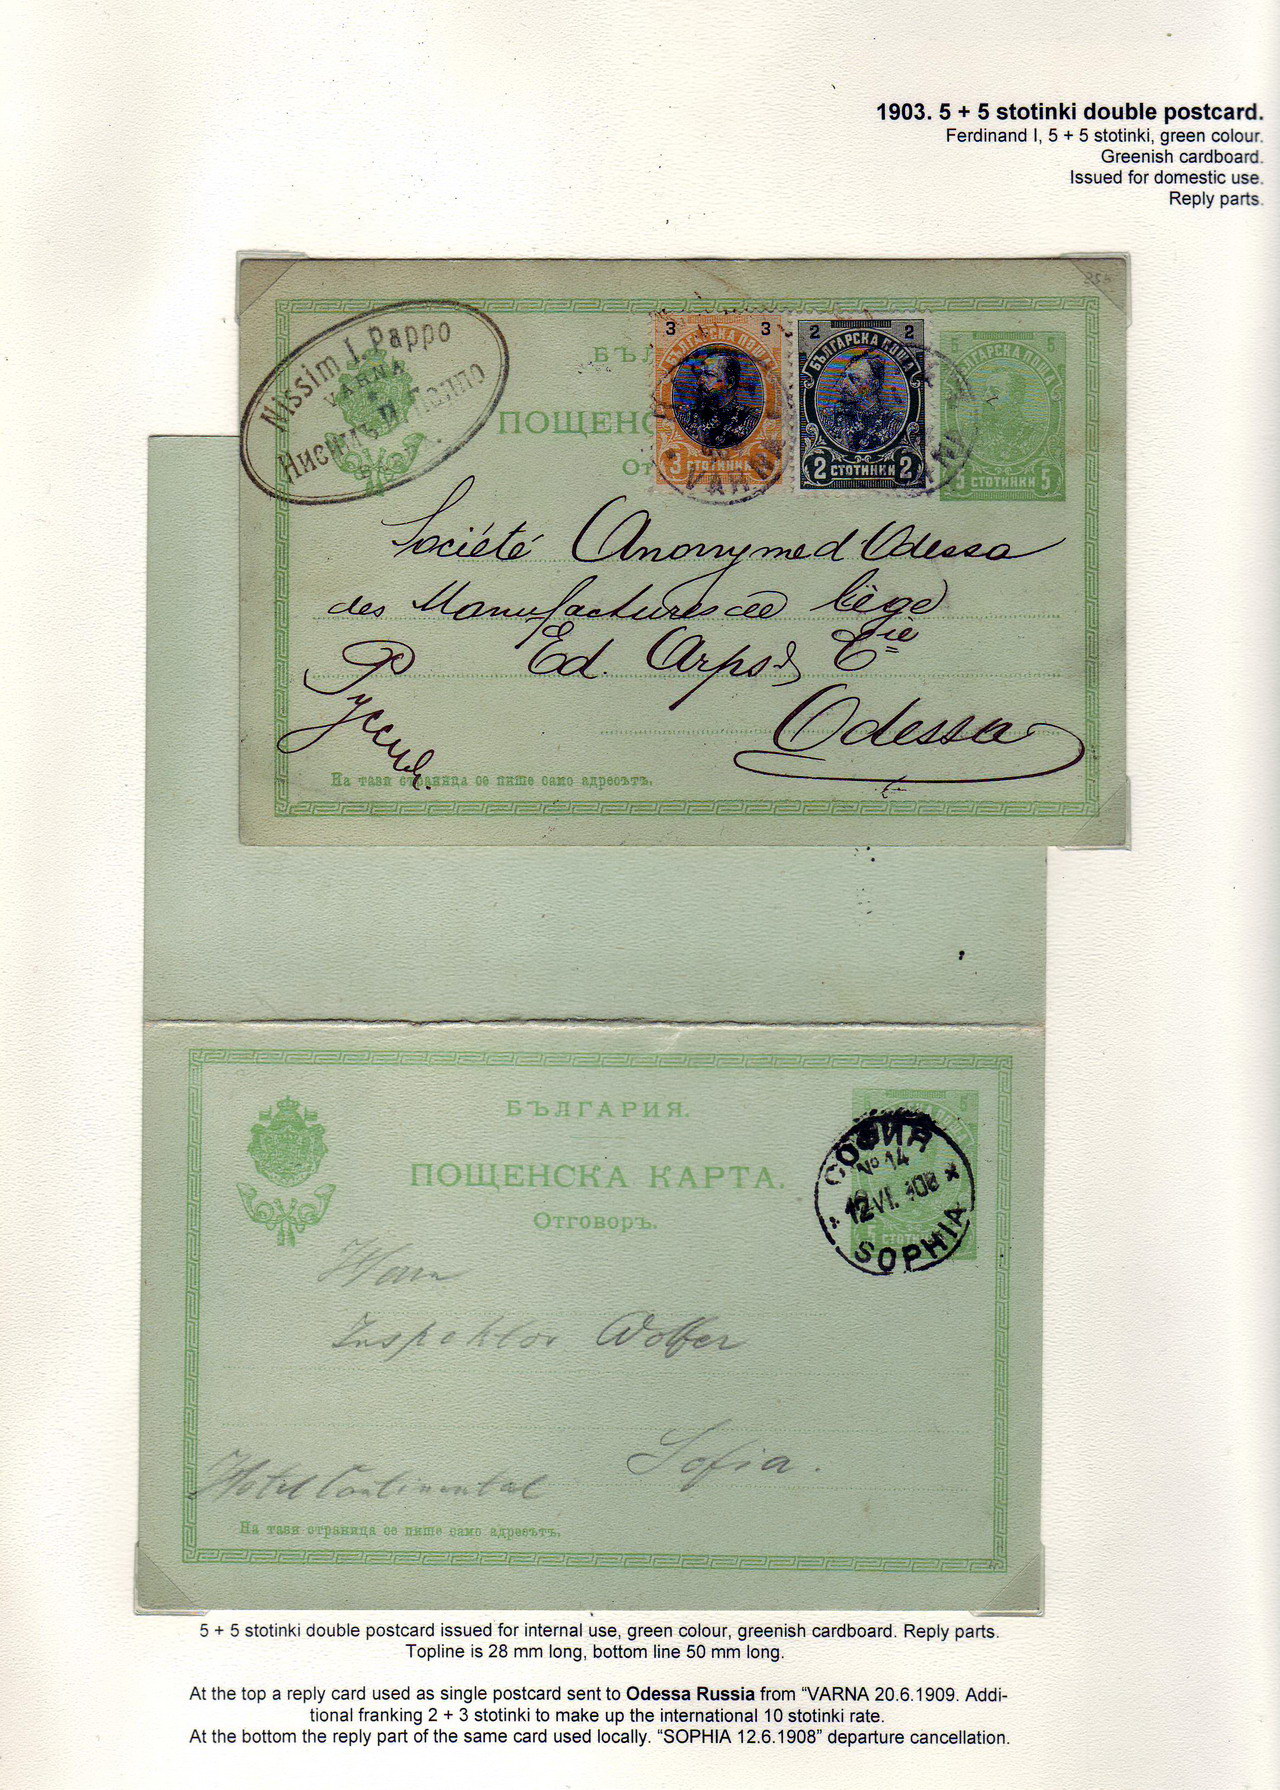 1903. 5 + 5 stotinki double postcard.
Ferdinand I, 5 + 5 stotinki, green colour.
Greenish cardboard.
Issued for domestic use.
Reply parts.
Nissim J. Pappo
VARNA
Нисимъ И. Паппо
БЪЛ
ПОЩЕНС
От
3 3
БЪЛГАРСКА ПОЩА
3 СТОТИНКИ
VARNA
2 2
БЪЛГАРСКА ПОЩА
2 СТОТИНКИ 2
5 5
БЪЛГАРСКА ПОЩА
5 СТОТИНКИ 5
Société Anonyme d'Odessa
des Manufactures de liège
Ed. Arps & Cie
Odessa
Руссия
На тази страница се пише само адресътъ.
БЪЛГАРИЯ.
ПОЩЕНСКА КАРТА.
Отговоръ.
СОФИЯ
No 14
12.VI.908
SOPHIA
Herrn
Inspektor Wolfer
Sofia.
Hotel Continental
На тази страница се пише само адресътъ.
5 + 5 stotinki double postcard issued for internal use, green colour, greenish cardboard. Reply parts.
Topline is 28 mm long, bottom line 50 mm long.
At the top a reply card used as single postcard sent to Odessa Russia from “VARNA 20.6.1909. Addi-
tional franking 2 + 3 stotinki to make up the international 10 stotinki rate.
At the bottom the reply part of the same card used locally. “SOPHIA 12.6.1908” departure cancellation.